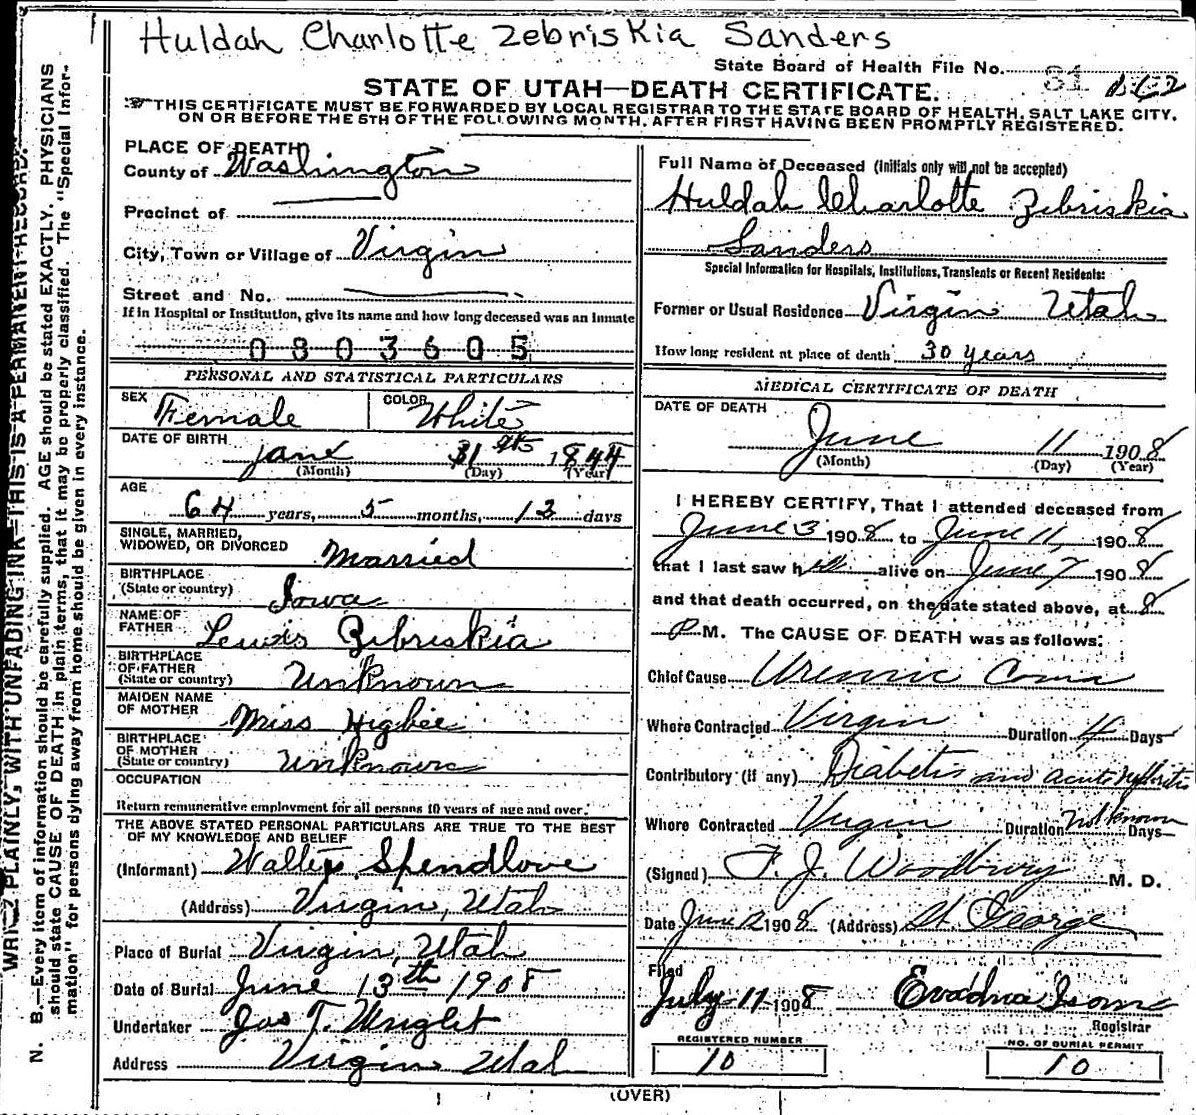 Huldah Charlotte Zebriskia Sanders
State Board of Health File No. 81
STATE OF UTAH—DEATH CERTIFICATE.
THIS CERTIFICATE MUST BE FORWARDED BY LOCAL REGISTRAR TO THE STATE BOARD OF HEALTH, SALT LAKE CITY,
ON OR BEFORE THE 5TH OF THE FOLLOWING MONTH, AFTER FIRST HAVING BEEN PROMPTLY REGISTERED.
WRITE PLAINLY, WITH UNFADING INK—THIS IS A PERMANENT RECORD.
N. B.—Every item of information should be carefully supplied. AGE should be stated EXACTLY. PHYSICIANS
should state CAUSE OF DEATH in plain terms, that it may be properly classified. The "Special Infor-
mation" for persons dying away from home should be given in every instance.
PLACE OF DEATH
County of Washington
Precinct of
City, Town or Village of Virgin
Street and No.
If in Hospital or Institution, give its name and how long deceased was an inmate
0803605
PERSONAL AND STATISTICAL PARTICULARS
SEX Female COLOR White
DATE OF BIRTH
jane 31 1844
(Month) (Day) (Year)
AGE
64 years, 5 months, 13 days
SINGLE, MARRIED,
WIDOWED, OR DIVORCED Married
BIRTHPLACE
(State or country) Iowa
NAME OF
FATHER Lewis Zibriskia
BIRTHPLACE
OF FATHER
(State or country) Unknown
MAIDEN NAME
OF MOTHER Miss Higbee
BIRTHPLACE
OF MOTHER
(State or country) Unknown
OCCUPATION
Return remunerative employment for all persons 10 years of age and over.
THE ABOVE STATED PERSONAL PARTICULARS ARE TRUE TO THE BEST
OF MY KNOWLEDGE AND BELIEF
(Informant) Spendlove
(Address) Virgin, Utah
Place of Burial Virgin, Utah
Date of Burial June 13th 1908
Undertaker Jas T. Wright
Address Virgin Utah
Full Name of Deceased (Initials only will not be accepted)
Huldah Charlotte Zibriskia
Sanders
Special Information for Hospitals, Institutions, Transients or Recent Residents:
Former or Usual Residence Virgin Utah
How long resident at place of death 30 years
MEDICAL CERTIFICATE OF DEATH
DATE OF DEATH
June 11 1908
(Month) (Day) (Year)
I HEREBY CERTIFY, That I attended deceased from
June 3 1908 to June 11, 1908
that I last saw her alive on June 7 1908
and that death occurred, on the date stated above, at 8
P M. The CAUSE OF DEATH was as follows:
Chief Cause Uremic Coma
Where Contracted Virgin Duration 4 Days
Contributory (if any) Diabetis and acute nephritis
Where Contracted Virgin Duration Not known Days
(Signed) F. J. Woodbury M. D.
Date June 12 1908 (Address) St. George
Filed
July 11 1908 Evadna Isom
Registrar
REGISTERED NUMBER
10
NO. OF BURIAL PERMIT
10
(OVER)